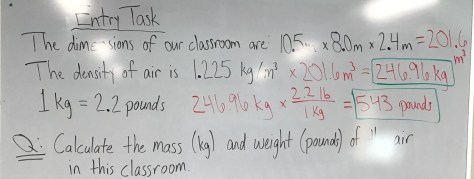 Entry Task
The dimensions of our classroom are 10.5 x 8.0m x 2.4m = 201.6 m³
The density of air is 1.225 kg/m³ x 201.6 m³ = 246.96 kg
1 kg = 2.2 pounds 246.96 kg x 2.2 lb / 1 kg = 543 pounds
Q: Calculate the mass (kg) and weight (pounds) of air
in this classroom.